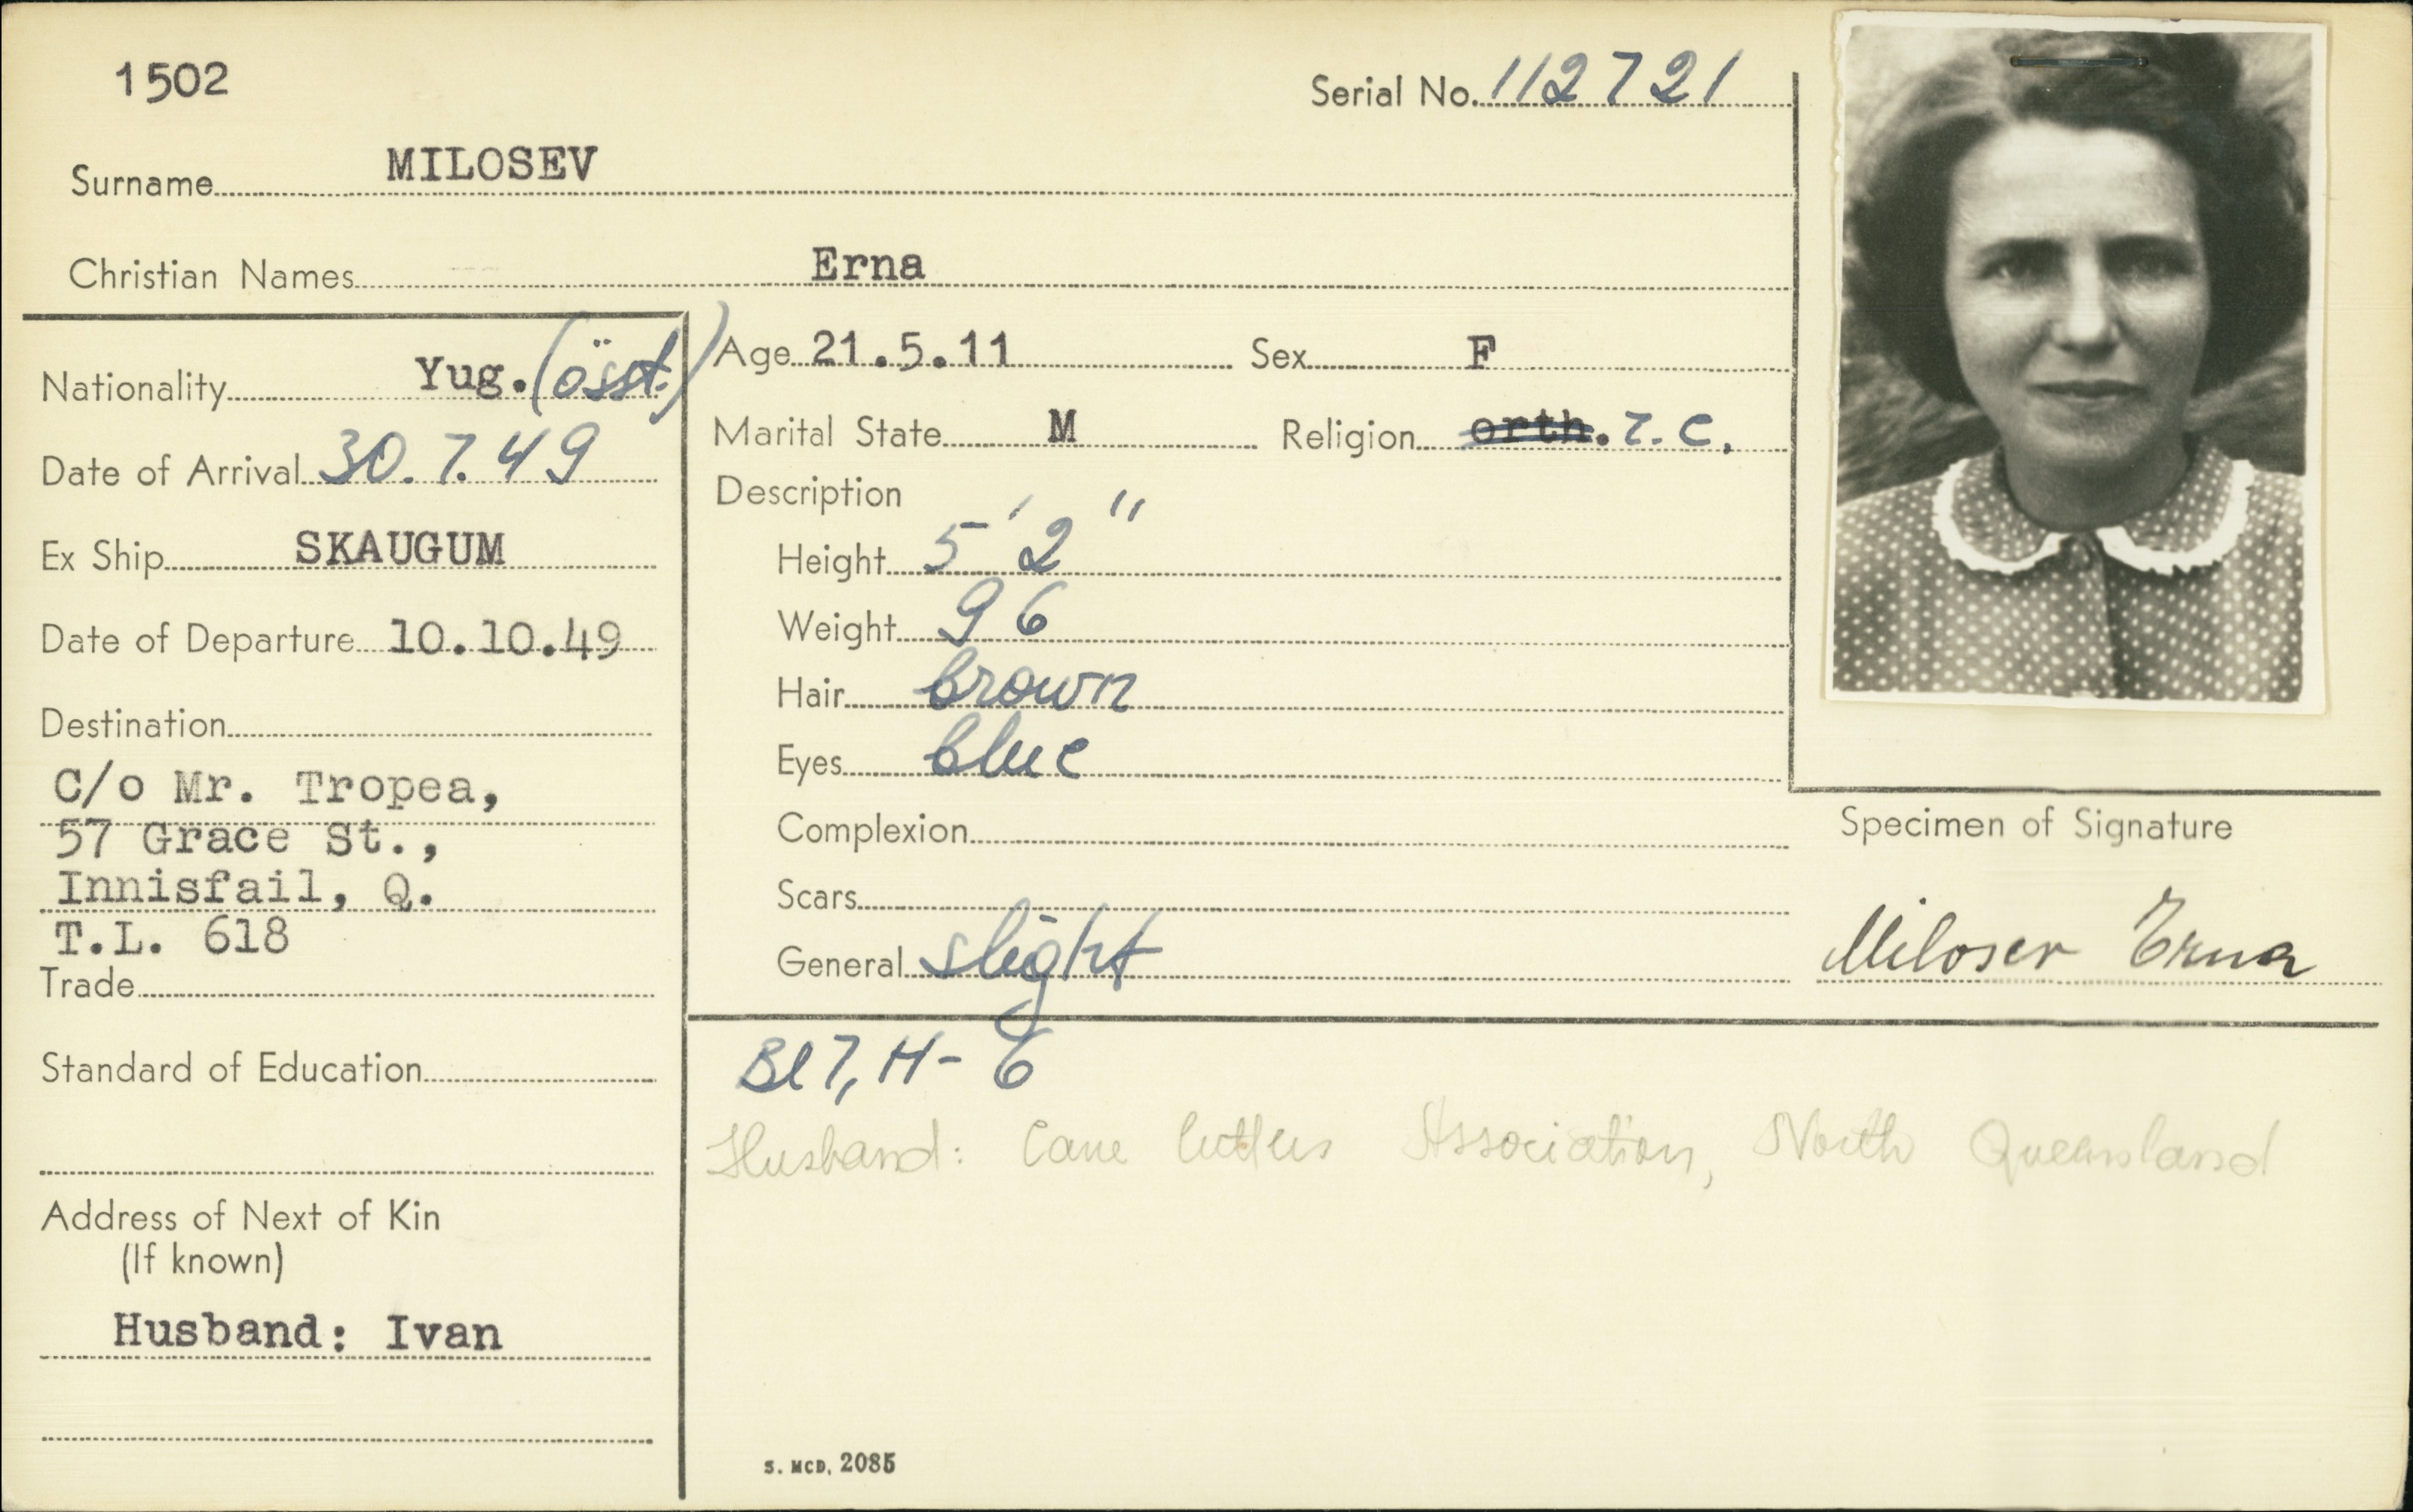 1502
Serial No. 112721
Surname MILOSEV
Christian Names Erna
Nationality Yug. (össt.)
Date of Arrival 30.7.49
Ex Ship SKAUGUM
Date of Departure 10.10.49
Destination
C/o Mr. Tropea,
57 Grace St.,
Innisfail, Q.
T.L. 618
Trade
Standard of Education
Address of Next of Kin
(If known)
Husband: Ivan
Age 21.5.11 Sex F
Marital State M Religion orth. r.c.
Description
Height 5' 2"
Weight 96
Hair brown
Eyes blue
Complexion
Scars
General slight
Specimen of Signature
Milosev Erna
Bl 7, H-6
Husband: Cane Cutters Association, North Queensland
S. MCD, 2085